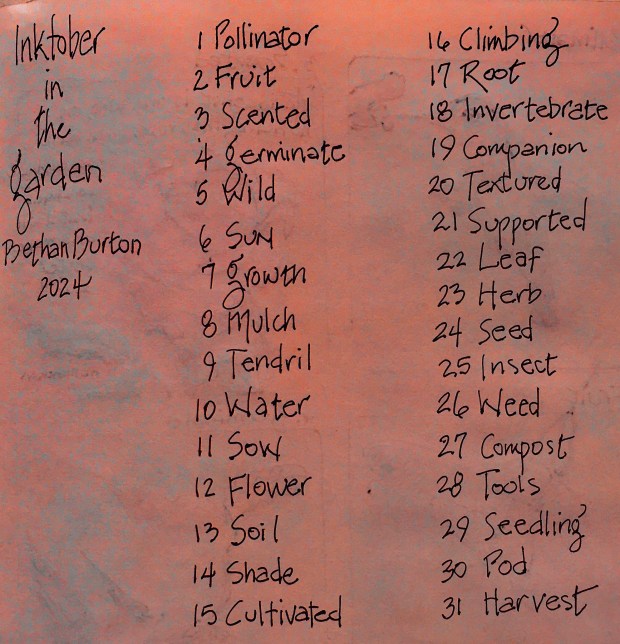 Inktober
in
the
garden
Bethan Burton
2024
1 Pollinator
2 Fruit
3 Scented
4 germinate
5 Wild
6 Sun
7 growth
8 Mulch
9 Tendril
10 Water
11 Sow
12 Flower
13 Soil
14 Shade
15 Cultivated
16 Climbing
17 Root
18 Invertebrate
19 Companion
20 Textured
21 Supported
22 Leaf
23 Herb
24 Seed
25 Insect
26 Weed
27 Compost
28 Tools
29 Seedling
30 Pod
31 Harvest